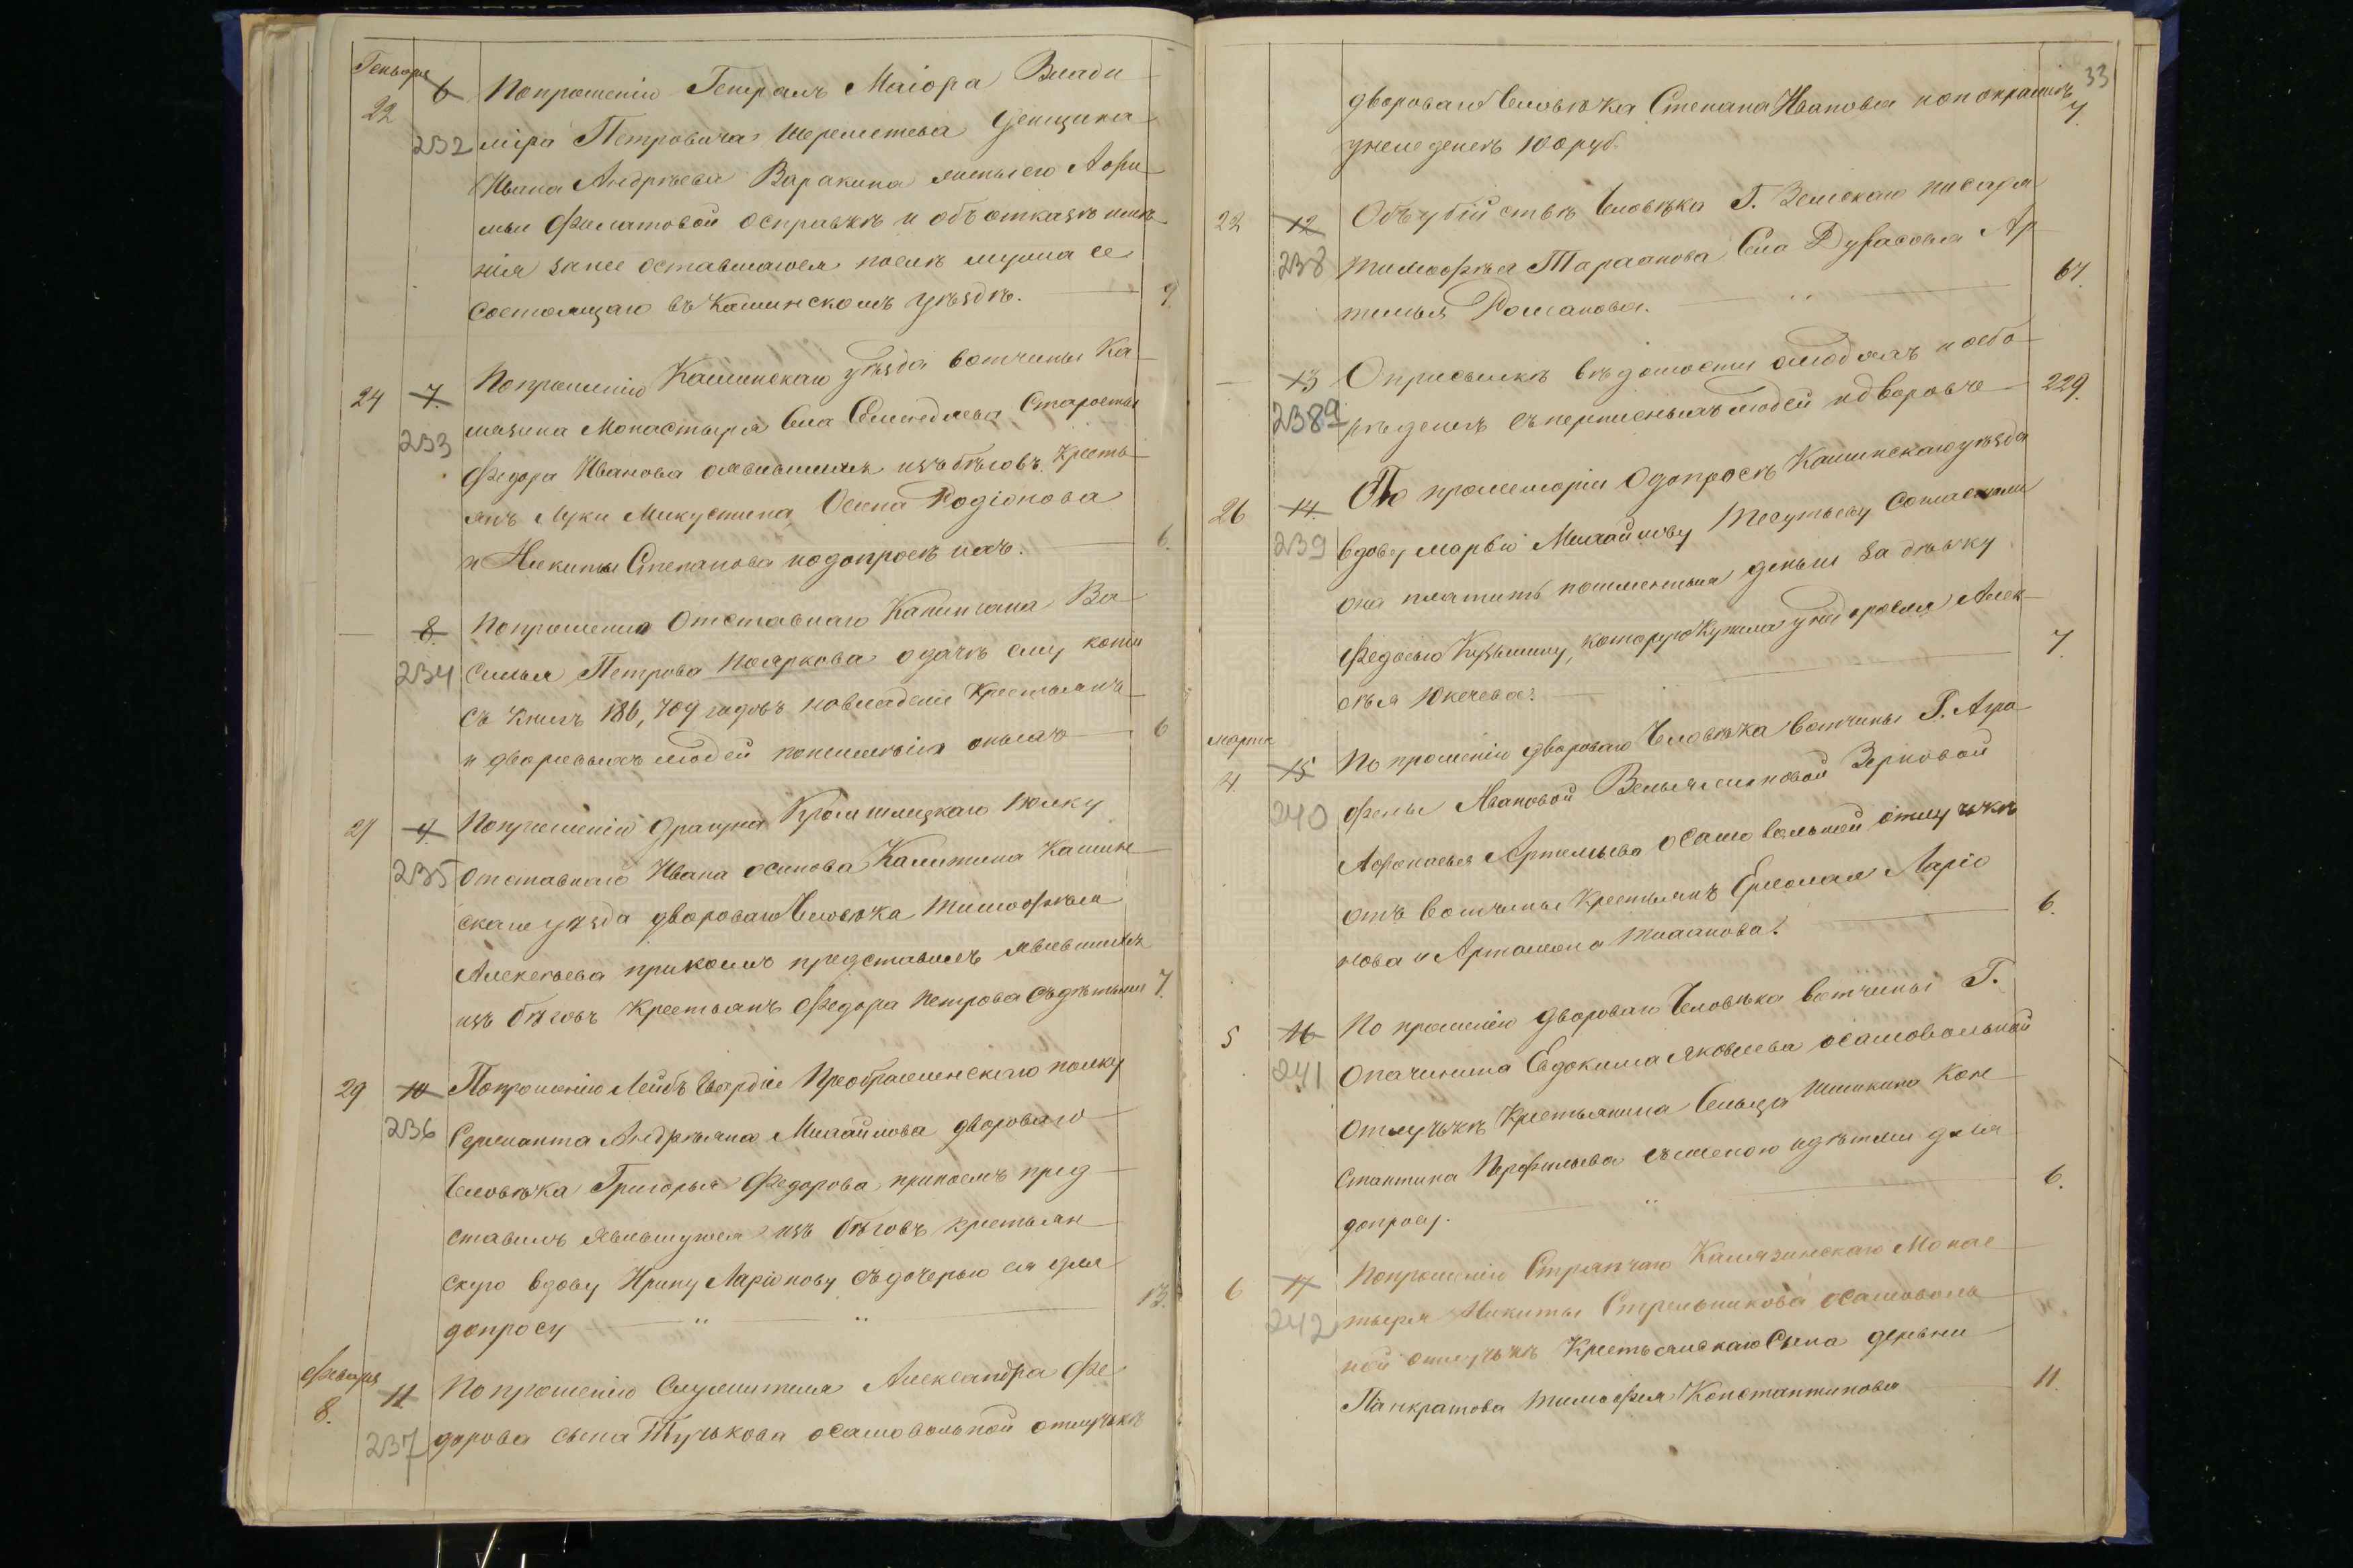 Генваря
22 6 Попрошенію Генералъ Маіора Влади
232 міра Петровича Шереметева Денщика
Ивана Андреева Варакина жены его Афи
мьи Филатовой осправкѣ и объ отказѣ имѣ
нія занее оставшагося послѣ мужа ее
состоящаго въ Кашинскомъ уѣздѣ. 9.
24 7. Попрошенію Кашинскаго уѣзда вотчины Ка
233 лязина Монастыря Села Старосты
Федора Иванова оявившимся изъ бѣговъ Кресть
янъ Луки Микустина, Осипа Родіонова
и Никиты Степанова кодопросѣ ихъ. 6.
— 8. Попрошенію Отставнаго Капитана Ва
234 силья Петрова Пояркова одачѣ ему копіи
Съ Книгъ 186, 709 годовъ повладени Крестьянъ
и дворовыхъ людей 6
27 9. Попрошенію драгуна Кроншлецкаго Полку
235 Отставнаго Ивана осипова Калитина Кашин
скаго уѣзда двороваго Человѣка Тимофѣя
Алексѣева прикоемъ представилъ явившимся
изъ бѣговъ Крестьянъ Федора Петрова Съдѣтьми 7.
29 10 Попрошенію Лейбъ Гвардіи Преображенскаго полку
236 Сержанта Андреяна Михайлова двороваго
Человѣка Григорья Федорова, прикоемъ пред
ставилъ Явившуюся изъ бѣговъ крестьян
скую вдову Ирину Ларіонову Съдочерью ея для
допросу " " 13.
Февраля
8. 11 Попрошенію Служителя Александра Фе
237 дорова сына Тучкова осамовольной отлучкѣ
33
двороваго Человѣка Степана Иванова и попокражѣ 7
унего денегъ 100 руб.
22 12 Объубійствѣ Человѣка Г. Земскаго писаря
238 Тимофѣя Тараанова Села Дубасова Ар
темья Романова. " 67.
— 13 Оприсылкѣ вѣдомости олюдяхъ и осбо
2389 рѣ денегъ съ людей идворовъ 229.
26 14. По промеморіи Одопросѣ Кашинскаго уѣзда
239 вдову Марью Михайлову Тесутьеву Согласнали
она платить пошлинныя деньги За дѣвку
Федосью Кузьмину, которую Купила у недоросля Алек
сѣя Юкечева. 7.
Марта
4. 15 По прошенію двороваго Человѣка вотчины Г. Агра
240 фены Ивановой Вельяминовой Зерновой
Афонасья Артемьева осамовольной отлучкѣ
отъ вотчины Крестьянъ Ермолая Ларіо
нова и Артамона 6.
5 16 По прошенію двороваго Человѣка вотчины Г.
241 Опачинина Евдокима Яковлева осамовольной
Отлучкѣ Крестьянина Сельца Шишкина Кон
стантина Перфильева съженою идѣтми для
допросу. " 6.
6 17 Попрошенію Стряпчаго Калязинскаго Монас
242 тыря Никиты Стрельникова осамоволь
ной отлучкѣ Крестьянскаго Сына деревни
Панкратова Тимофея Константинова 11.